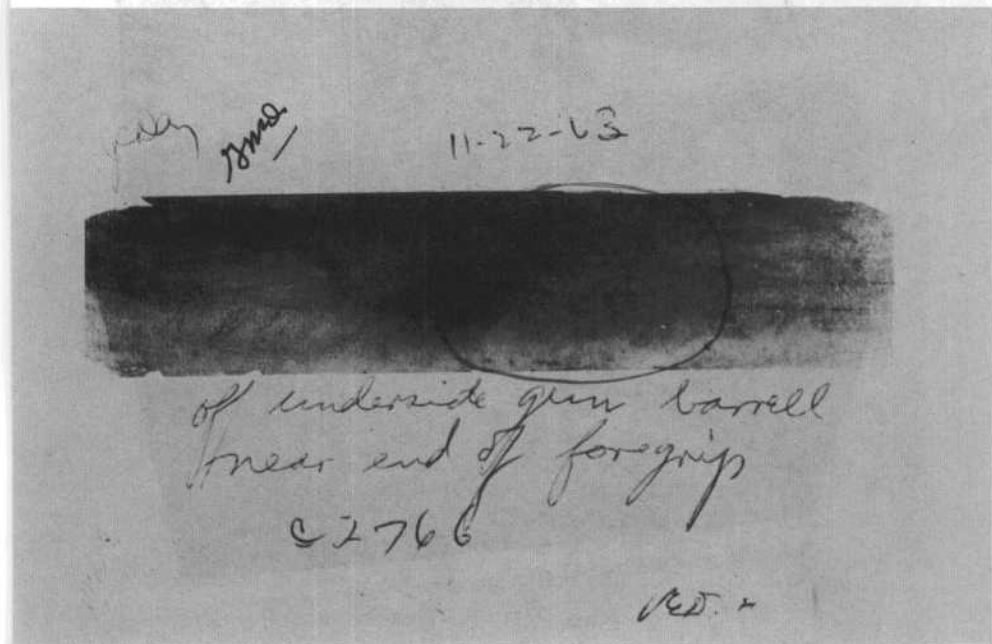 11-22-63
off underside gun barrell
near end of foregrip
C2766